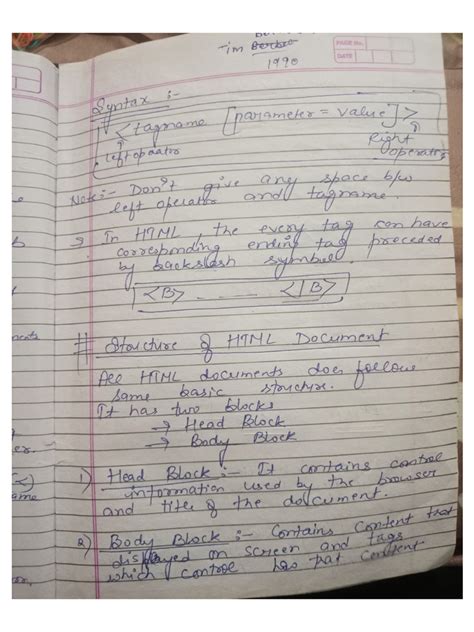 -im Berbro
1990
PAGE No.
DATE
Syntax :-
< tagname [parameter = value] >
left opaatro
Right
operatro
Note:- Don't give any space b/w
left operator and tagname.
In HTML, the every tag can have
corresponding ending tag preceded
by backslash symbol.
<B> ------ <|B>
# Structure of HTML Document
All HTML documents does follow
same basic structure.
It has two blocks
→ Head Block
→ Body Block
1) Head Block :- It contains control
information used by the browser
and title of the document.
2) Body Block :- Contains Content that
displayed on screen and tags
which control has that content